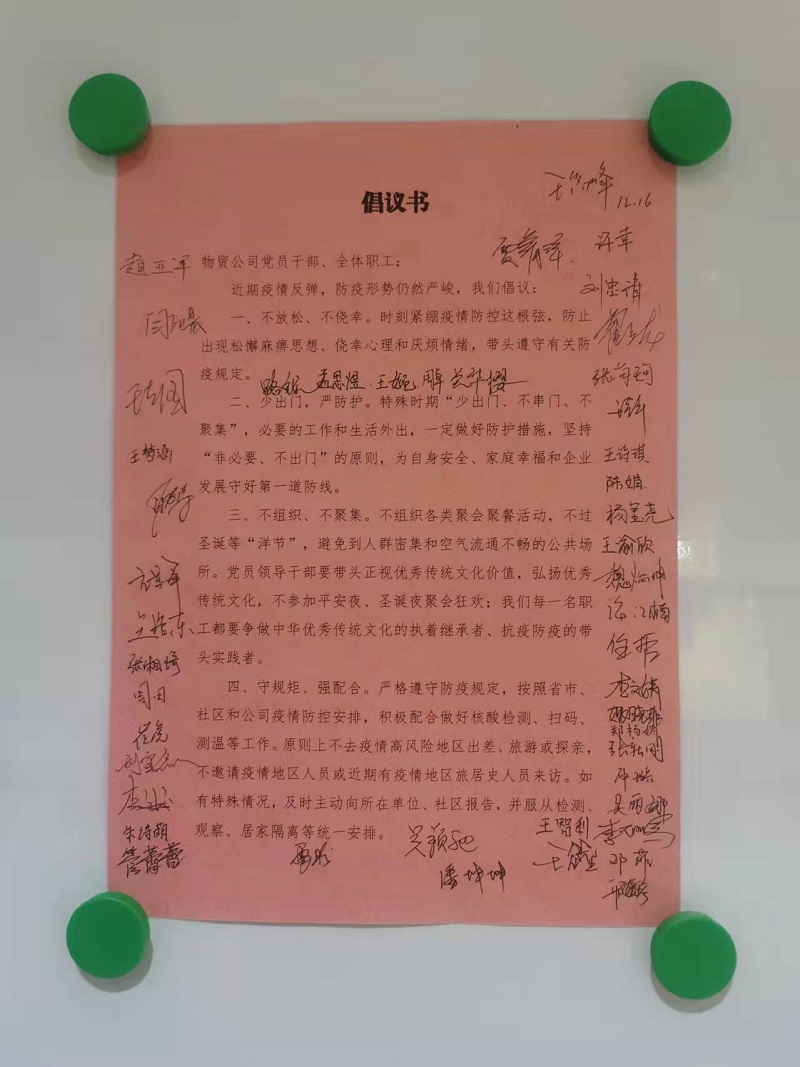 倡议书
12.16
物贸公司党员干部、全体职工：
近期疫情反弹，防疫形势仍然严峻，我们倡议：
一、不放松、不侥幸。时刻紧绷疫情防控这根弦，防止
出现松懈麻痹思想、侥幸心理和厌烦情绪，带头遵守有关防
疫规定。
二、少出门，严防护。特殊时期“少出门、不串门、不
聚集”，必要的工作和生活外出，一定做好防护措施，坚持
“非必要、不出门”的原则，为自身安全、家庭幸福和企业
发展守好第一道防线。
三、不组织、不聚集。不组织各类聚会聚餐活动，不过
圣诞等“洋节”，避免到人群密集和空气流通不畅的公共场
所。党员领导干部要带头正视优秀传统文化价值，弘扬优秀
传统文化，不参加平安夜、圣诞夜聚会狂欢；我们每一名职
工都要争做中华优秀传统文化的执着继承者、抗疫防疫的带
头实践者。
四、守规矩、强配合。严格遵守防疫规定，按照省市、
社区和公司疫情防控安排，积极配合做好核酸检测、扫码、
测温等工作。原则上不去疫情高风险地区出差、旅游或探亲，
不邀请疫情地区人员或近期有疫情地区旅居史人员来访。如
有特殊情况，及时主动向所在单位、社区报告，并服从检测、
观察、居家隔离等统一安排。
赵亚军
王梦涵
张湘琦
朱诗萌
管蕾蕾
潘坤坤
王智利
许幸
王诗琪
陈娟
王渝欣
李文婧
吴丽娜
邓菲